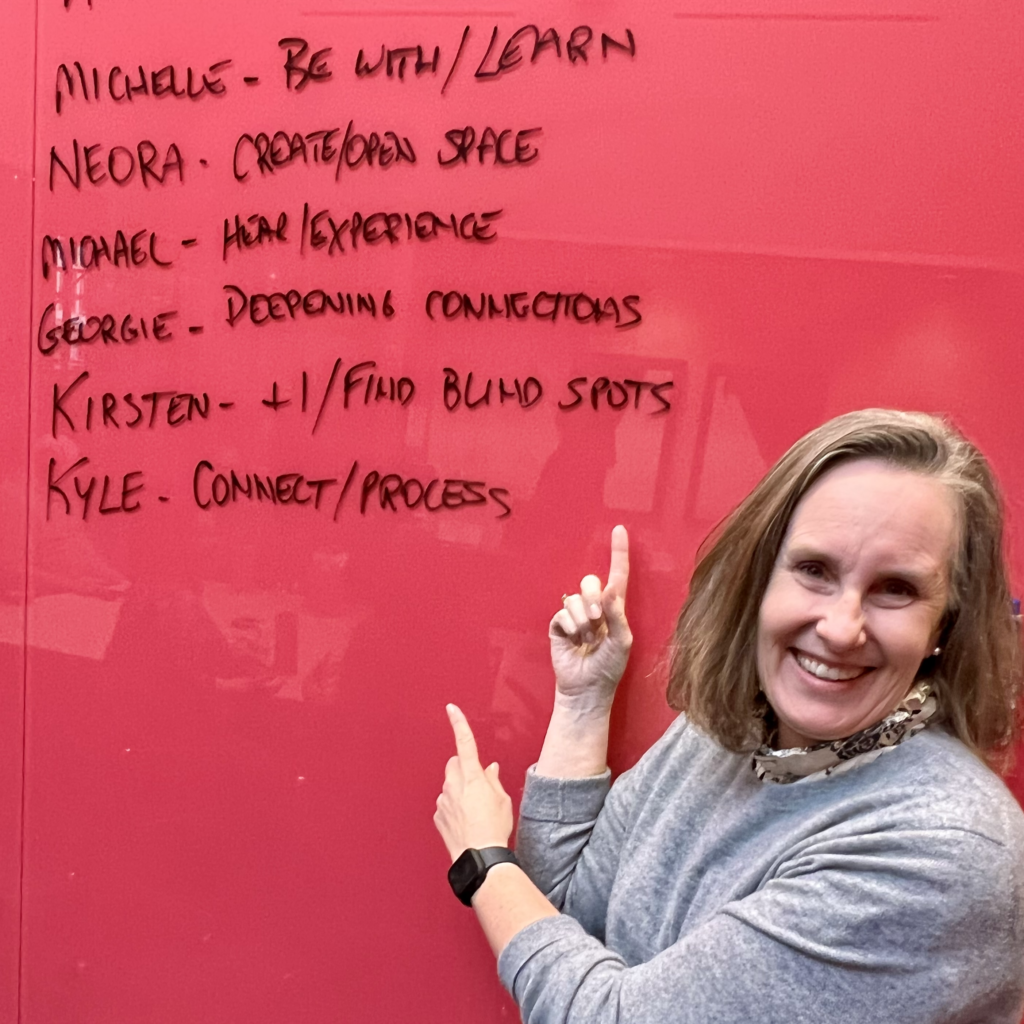 MICHELLE - BE WITH/LEARN
NEORA - CREATE/OPEN SPACE
MICHAEL - HEAR/EXPERIENCE
GEORGIE - DEEPENING CONNECTIONS
KIRSTEN - +1/FIND BLIND SPOTS
KYLE - CONNECT/PROCESS